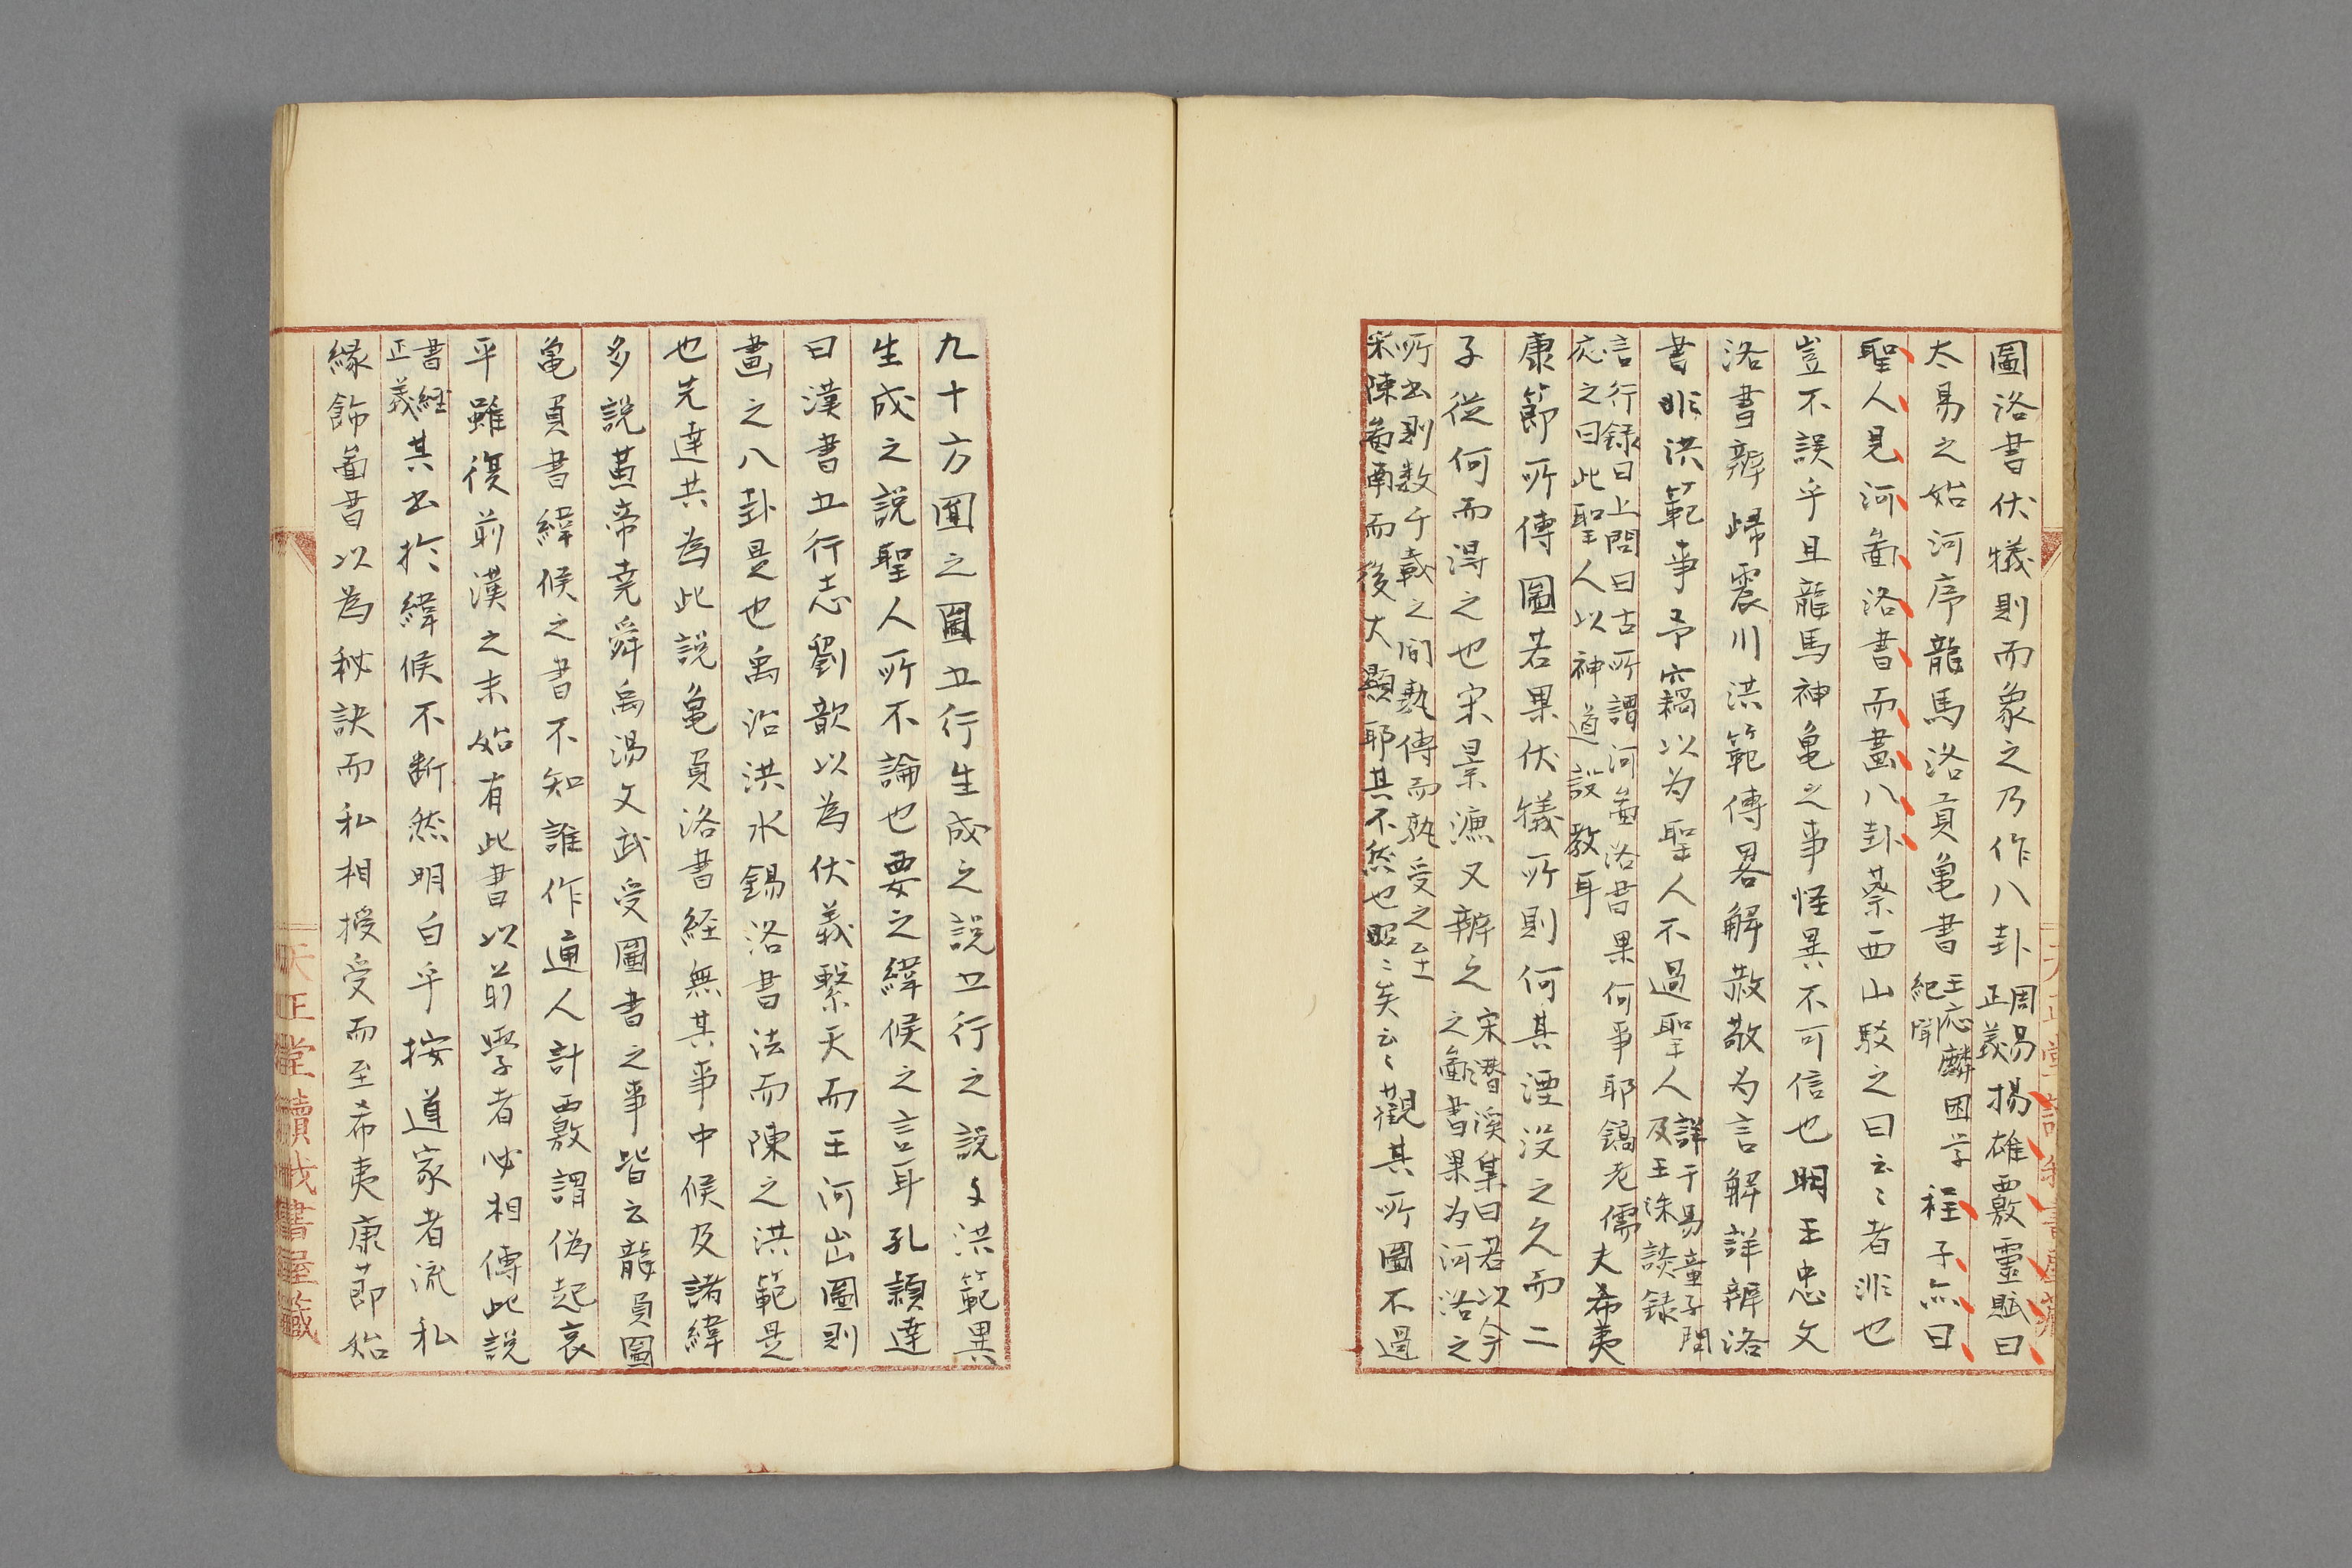 圖洛書伏犠則而象之乃作八卦周易正義揚雄覈靈賦曰
太易之始河序龍馬洛貢亀書王応麟困学紀聞程子亦曰
聖人見河啚洛書而畫八卦蔡西山駁之曰云〻者非也
豈不誤乎且龍馬神亀之事怪異不可信也明王忠文
洛書辨歸震川洪範傳畧解敖敬为言解詳辨洛
書非洪範事予竊以为聖人不過聖人詳于易童子問及王洙談録
言行録曰上問曰古所謂河啚洛書果何事耶鎬老儒
応之曰此聖人以神道設教耳夫希夷
康節所傳圖若果伏犠所則何其湮没之久而二
子從何而得之也宋景濂又辨之宋潜溪集曰若以今之啚書果为河洛之
所出則数千載之間孰傳而孰受之至
宋陳啚南而後大顯耶其不然也昭〻矣云〻觀其所圖不過
九十方圓之圖五行生成之説五行之説文洪範異
生成之説聖人所不論也要之緯候之言耳孔頴達
曰漢書五行志劉歆以為伏義繫天而王河出圖則
畫之八卦是也禹治洪水錫洛書法而陳之洪範是
也先達共為此説亀負洛書経無其事中候及諸緯
多説黄帝尭舜禹湯文武受圖書之事皆云龍負圖
亀負書緯候之書不知誰作通人計覈謂偽起哀
平雖復前漢之末始有此書以前學者必相傳此説
書経正義其出於緯候不断然明白乎按道家者流私
緣飾啚書以為秘訣而私相授受而至希夷康節始
天正堂讀我書屋藏